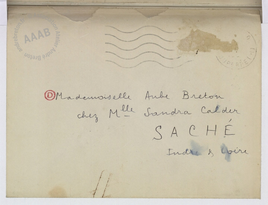 AAAB
Mademoiselle Aube Breton
chez Mlle Sandra Calder
SACHÉ
Indre & Loire